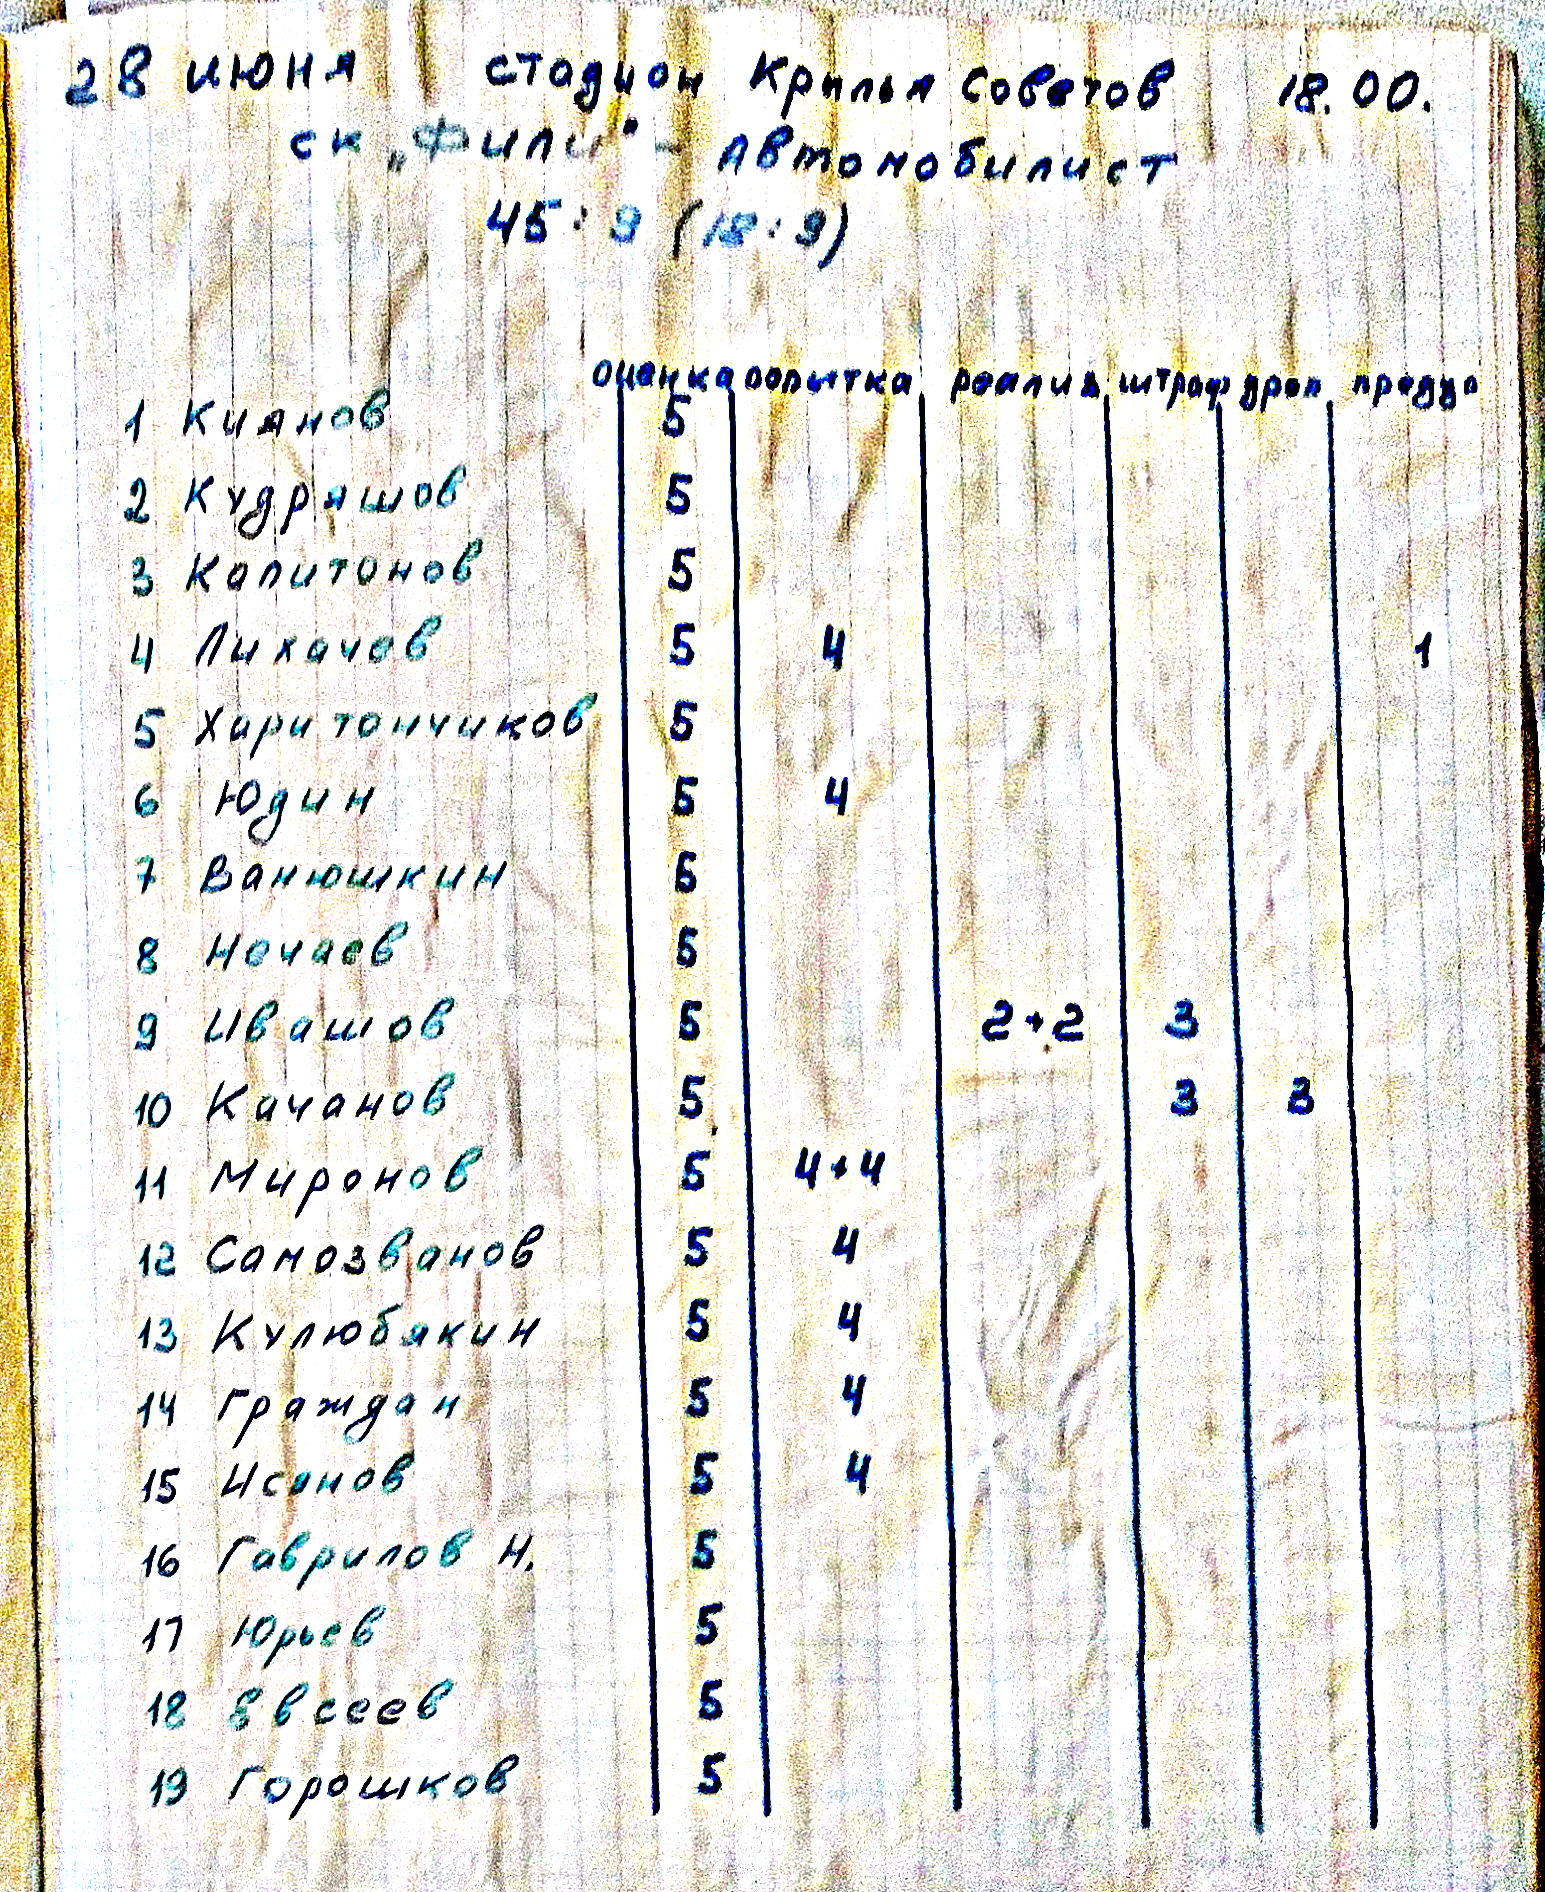 28 июня стадион Крылья Советов 18.00.
ск „Фили" - Автомобилист
45:9 (18:9)
оценка попытка реализ штраф дроп предуп
1 Киянов 5
2 Кудряшов 5
3 Капитонов 5
4 Лихачев 5 4 1
5 Харитончиков 5
6 Юдин 5 4
7 Ванюшкин 5
8 Нечаев 5
9 Ивашов 5 2+2 3
10 Качанов 5 3 3
11 Миронов 5 4+4
12 Самозванов 5 4
13 Кулюбякин 5 4
14 Граждан 5 4
15 Исянов 5 4
16 Гаврилов Н. 5
17 Юрьев 5
18 Евсеев 5
19 Горошков 5